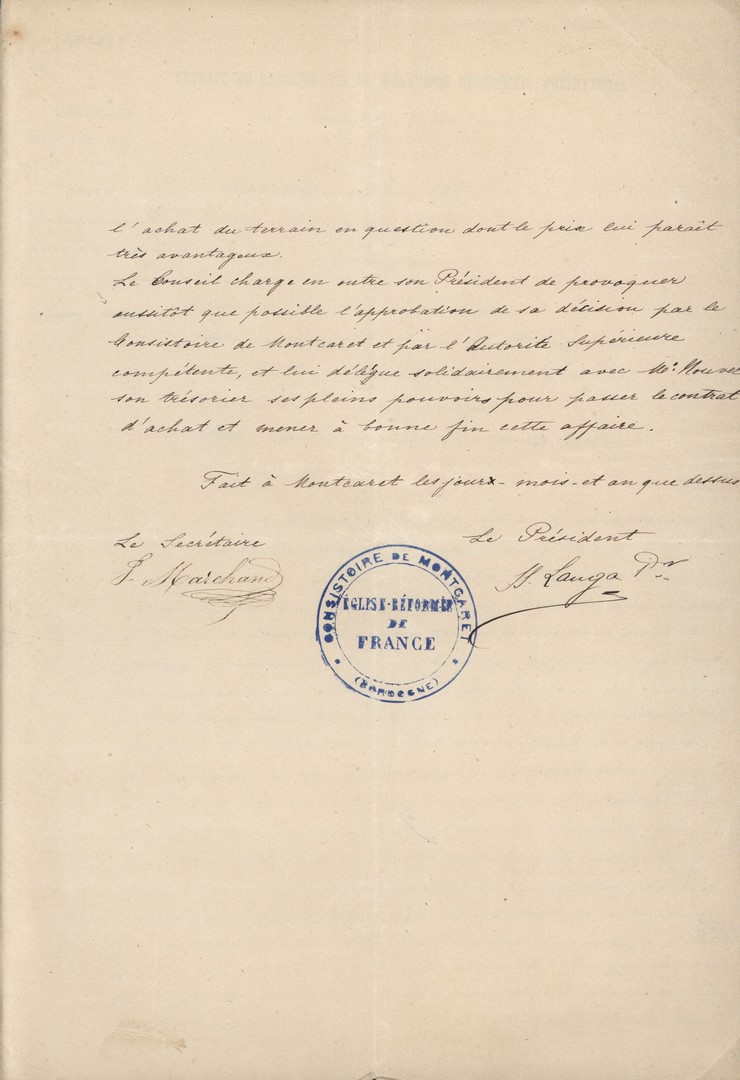 l'achat du terrain en question dont le prix lui paraît
très avantageux.
Le Conseil charge en outre son Président de provoquer
aussitôt que possible l'approbation de sa décision par le
Consistoire de Montcaret et par l'Autorité Supérieure
compétente, et lui délègue solidairement avec Mr. Nouvel
son trésorier ses pleins pouvoirs pour passer le contrat
d'achat et mener à bonne fin cette affaire.
Fait à Montcaret les jour - mois - et an que dessus
Le Secrétaire
Le Président
Marchand
Lauga Pr
CONSISTOIRE DE MONTCARET
ÉGLISE-RÉFORMÉE
DE
FRANCE
(DORDOGNE)